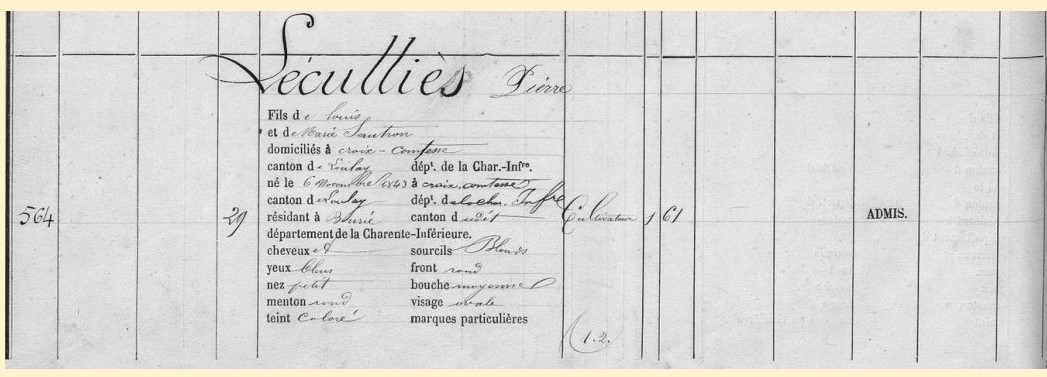 Lécuttiès Pierre
Fils de Louis
et de Marie Sautron
domiciliés à croix-comtesse
canton de Loulay dépt. de la Char.-Infre.
né le 6 Novembre 1843 à croix-comtesse
canton de Loulay dépt. de la char. Inffre
564 29 résidant à canton d udit Cultivateur 1 61 ADMIS.
département de la Charente-Inférieure.
cheveux et sourcils Blonds
yeux bleus front rond
nez petit bouche moyenne
menton rond visage ovale
teint Coloré marques particulières
(1.2.